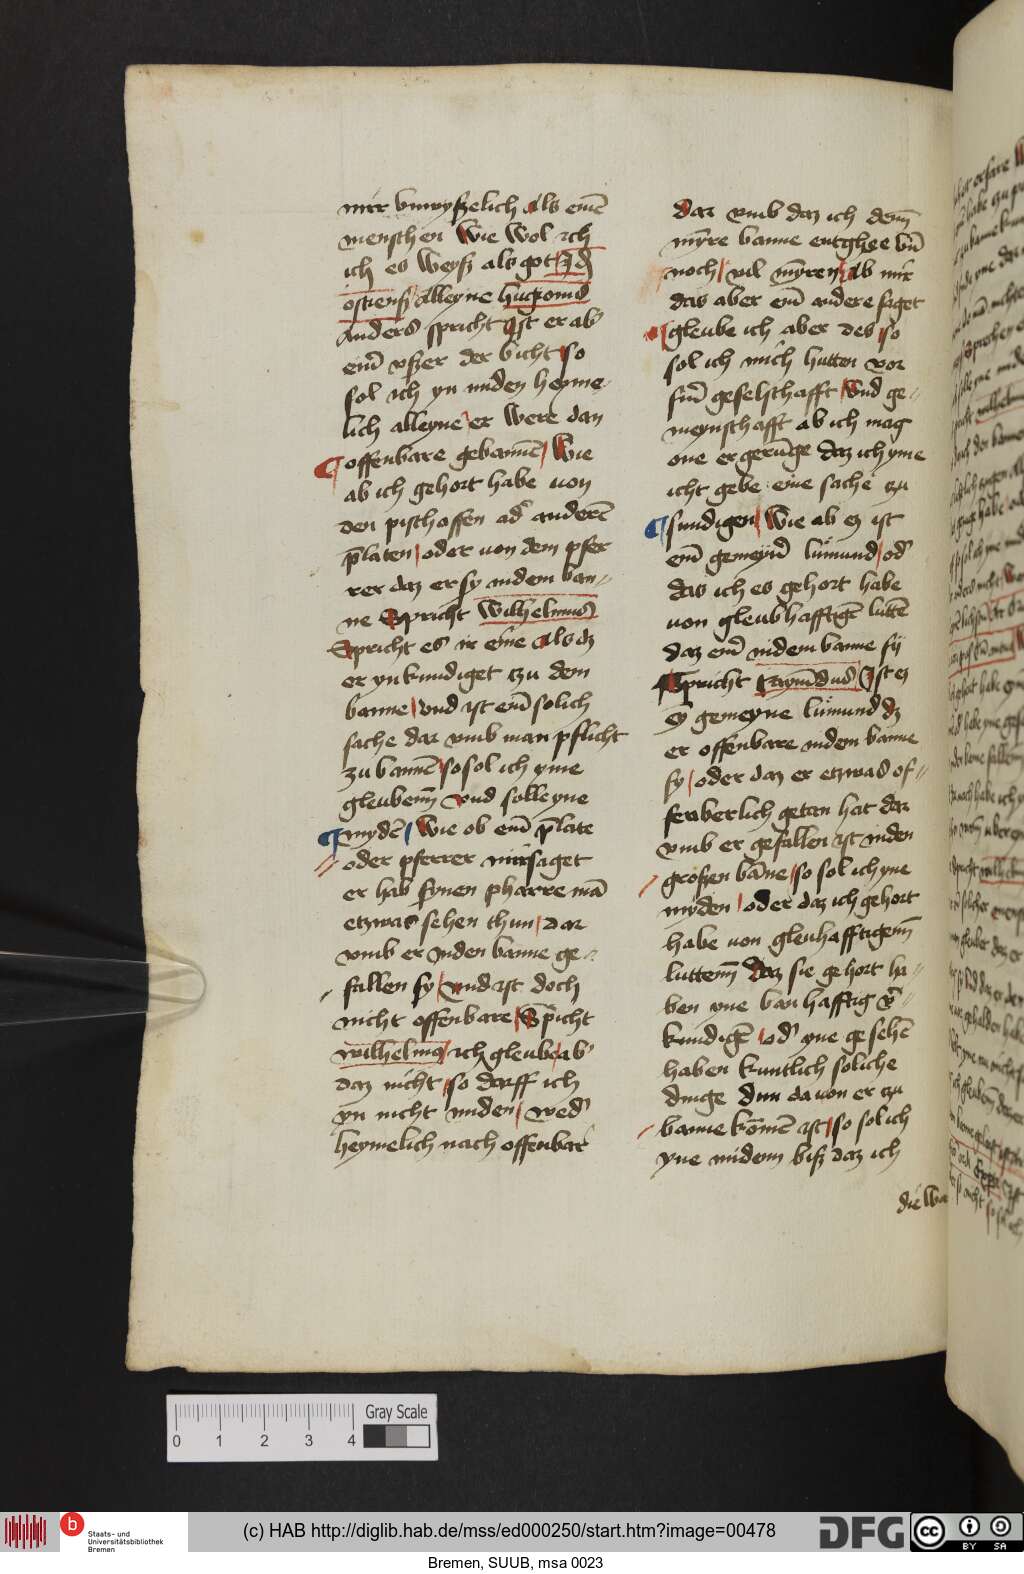 mir vnwyszelich als eine͞
menschen Wie wol ich
ich es weysz als got Jd͞
ostiens͞ Alleyne hugonis
anders spricht Ist er ab͛
ein͞ vszer der bicht so
sol ich yn miden heyme-
lich alleyne er were dan
offenbare gebanne͞ Wie
ab ich gehort habe von
den pischoffen ad͛ andere͞
p͞laten oder von dem pfer
rer daz er sy in dem ban-
ne Spricht Wilhelmus
Spricht es ir eine als dz
er yn kundiget tzu dem
banne vnd ist ein͞ solich
sache dar vmb man pflicht
zu banne͞ so sol ich yme
gleubenn͞ vnd sol e yne
myde͞ Wie ob ein͞ p͞late
oder pferrer mir saget
er hab synen pharre ma͞
etzwas sehen thun dar
vmb er in den banne ge-
fallen sy vnd ist doch
nicht offenbare Sp͛icht
wilhelmꝰ ich gleube ab͛
daz nicht so darff ich
yn nicht miden wed͛
heymelich nach offenbar
dar vmb daz ich denn͞
myre banne entghee vn͞
noch vil myren Ab mir
das aber ein͞ andere saget
gleube ich aber des so
sol ich mich hutten vor
sin͞ geselschafft vnd ge-
meynschafft ab ich mag
one ergeru͞ge daz ich yme
icht gebe eine sache tzu
sundigen Wie ab ez ist
ein͞ gemeyn͞ lumund od͛
das ich es gehort habe
von gleubhafftige͞ lutte͞
daz ein͞ in dem banne sij
Spricht Raymu͞dus Ist ez
ey gemeyne lumund dz
er offenbare in dem banne
sy oder daz er etzwas of-
fenberlich getan hat dar
vmb er gefallen ist in den
groszen ba͞ne so sol ich yne
myden oder daz ich gehort
habe von gleuhafftigenn͞
luttenn͞ daz sie gehort ha-
ben yne banhafftig v͛-
kundige͞ od͛ yne gesehe͞
haben kuntlich soliche
dinge dun da von er tzu
banne kome͞ ist so sol ich
yne midenn bisz daz ich
die wa
0 1 2 3 4
Gray Scale
b
Staats- und
Universitätsbibliothek
Bremen
(c) HAB http://diglib.hab.de/mss/ed000250/start.htm?image=00478
DFG
cc
BY SA
Bremen, SUUB, msa 0023